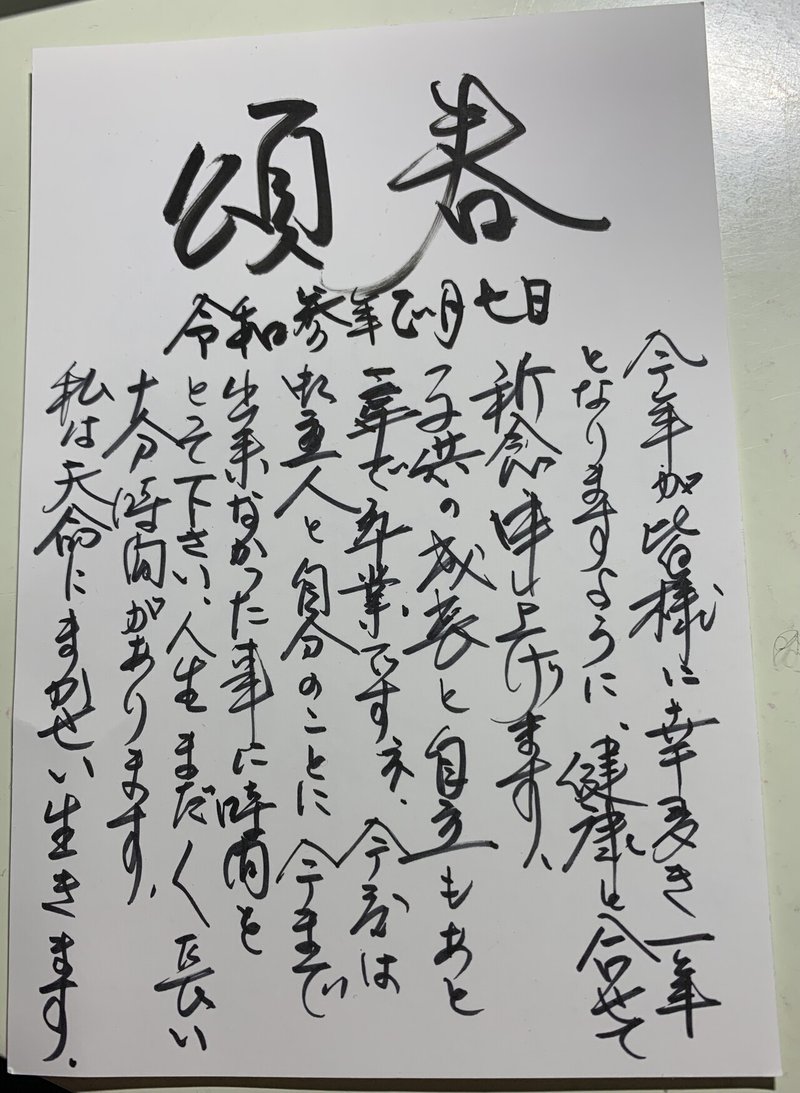 頌春
令和参年正月七日
今年が皆様に幸多き一年
となりますように、健康と合せて
祈念申し上げます、
子供の成長と自立もあと
一章で卒業ですネ、今度は
御主人と自分のことに今まで
出来なかった事に時間を
とって下さい、人生まだ〱長い
十分時間があります、
私は天命にまかせい生きます、